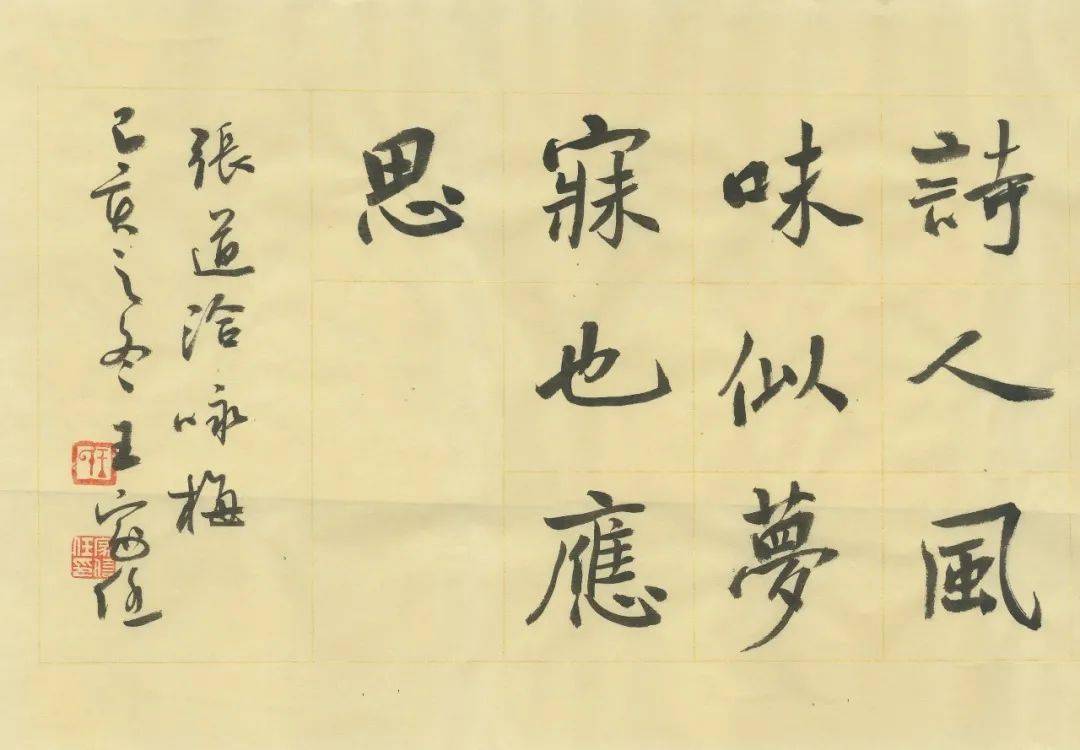 詩人風
味似夢
寐也應
思
張道洽咏梅
己亥之冬王